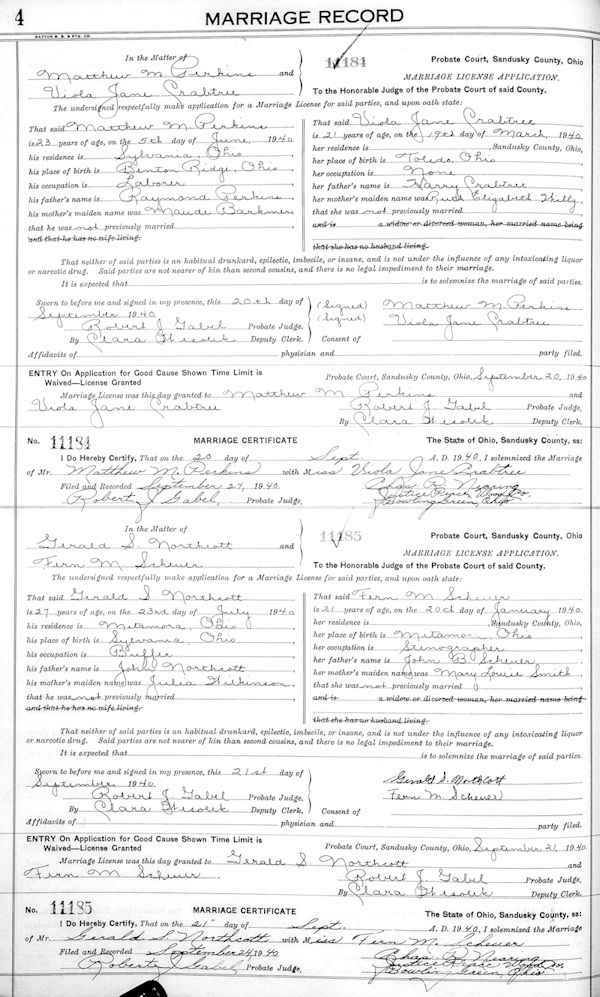 4 MARRIAGE RECORD
In the Matter of
Matthew M. Perkins and
Viola Jane Crabtree
11184
Probate Court, Sandusky County, Ohio
MARRIAGE LICENSE APPLICATION.
To the Honorable Judge of the Probate Court of said County.
The undersigned respectfully make application for a Marriage License for said parties, and upon oath state:
That said Matthew M. Perkins
is 23 years of age, on the 5th day of June, 1940
his residence is Sylvania, Ohio
his place of birth is Benton Ridge, Ohio,
his occupation is Laborer
his father's name is Raymond Perkins,
his mother's maiden name was Maude
that he was not previously married
and that he has no wife living.
That said Viola Jane Crabtree
is 21 years of age, on the 19th day of March, 1940
her residence is , Sandusky County, Ohio,
her place of birth is Toledo, Ohio
her occupation is None
her father's name is Harry Crabtree
her mother's maiden name was Ruth Elizabeth
that she was not previously married
and is a widow or divorced woman, her married name being
that she has no husband living.
That neither of said parties is an habitual drunkard, epileptic, imbecile, or insane, and is not under the influence of any intoxicating liquor
or narcotic drug. Said parties are not nearer of kin than second cousins, and there is no legal impediment to their marriage.
It is expected that is to solemnize the marriage of said parties.
Sworn to before me and signed in my presence, this 20th day of
September 1940.
Robert J. Gabel Probate Judge.
By Clara Deputy Clerk.
(Signed) Matthew M. Perkins
(Signed) Viola Jane Crabtree
Consent of
Affidavits of physician and party filed.
ENTRY On Application for Good Cause Shown Time Limit is
Waived—License Granted
Probate Court, Sandusky County, Ohio, September 20, 1940
Marriage License was this day granted to Matthew M Perkins and
Viola Jane Crabtree Robert J. Gabel Probate Judge,
By Clara Deputy Clerk.
No. 11184 MARRIAGE CERTIFICATE The State of Ohio, Sandusky County, ss:
I Do Hereby Certify, That on the 20 day of Sept. A. D. 1940, I solemnized the Marriage
of Mr. Matthew M. Perkins with Miss Viola Jane Crabtree
Filed and Recorded September 24, 1940. Chas. B. Nearing
Robert J Gabel, Probate Judge. Justice Peace Wood Co.
Bowling Green, Ohio
In the Matter of
Gerald S. Northcott and
Fern M Scheuer
11185
Probate Court, Sandusky County, Ohio
MARRIAGE LICENSE APPLICATION.
To the Honorable Judge of the Probate Court of said County.
The undersigned respectfully make application for a Marriage License for said parties, and upon oath state:
That said Gerald S. Northcott
is 27 years of age, on the 23rd day of July, 1940
his residence is Metamora, Ohio
his place of birth is Sylvania, Ohio
his occupation is Buffer
his father's name is John Northcott
his mother's maiden name was Julia Wilkinson,
that he was not previously married
and that he has no wife living.
That said Fern M. Scheuer
is 21 years of age, on the 20th day of January, 1940
her residence is , Sandusky County, Ohio,
her place of birth is Metamora, Ohio
her occupation is Stenographer
her father's name is John B. Scheuer
her mother's maiden name was Mary Louise Smith
that she was not previously married
and is a widow or divorced woman, her married name being
that she has no husband living.
That neither of said parties is an habitual drunkard, epileptic, imbecile, or insane, and is not under the influence of any intoxicating liquor
or narcotic drug. Said parties are not nearer of kin than second cousins, and there is no legal impediment to their marriage.
It is expected that is to solemnize the marriage of said parties.
Sworn to before me and signed in my presence, this 21st day of
September 1940.
Robert J Gabel Probate Judge.
By Clara Deputy Clerk.
Gerald S. Northcott
Fern M. Scheuer
Consent of
Affidavits of physician and party filed.
ENTRY On Application for Good Cause Shown Time Limit is
Waived—License Granted
Probate Court, Sandusky County, Ohio, September 21, 1940
Marriage License was this day granted to Gerald S Northcott and
Fern M. Scheuer Robert J. Gabel Probate Judge,
By Clara Deputy Clerk.
No. 11185 MARRIAGE CERTIFICATE The State of Ohio, Sandusky County, ss:
I Do Hereby Certify, That on the 21" day of Sept. A. D. 1940, I solemnized the Marriage
of Mr. Gerald S. Northcott with Miss Fern M. Scheuer
Filed and Recorded September 24, 1940. Chas. B. Nearing
Robert J Gabel, Probate Judge. Justice Peace Wood Co.
Bowling Green, Ohio